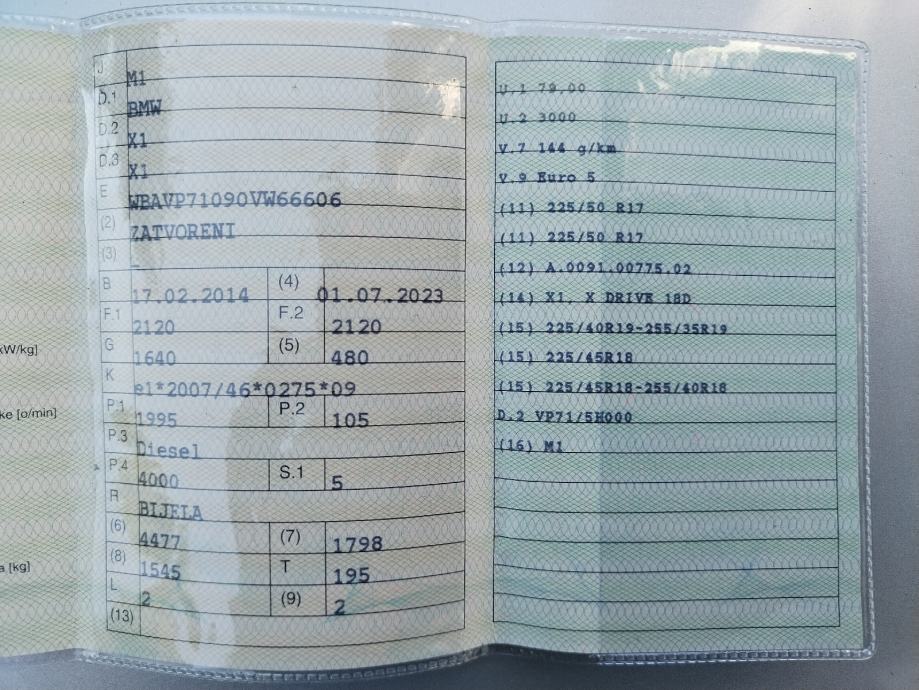 J M1
D.1 BMW
D.2 X1
D.3 X1
E WBAVP71090VW66606
(2) ZATVORENI
(3) –
B 17.02.2014 (4) 01.07.2023
F.1 2120 F.2 2120
G 1640 (5) 480
K e1*2007/46*0275*09
P.1 1995 P.2 105
P.3 Diesel
P.4 4000 S.1 5
R BIJELA
(6) 4477 (7) 1798
(8) 1545 T 195
L 2 (9) 2
(13)
kW/kg]
ke [o/min]
a [kg]
U.1 79,00
U.2 3000
V.7 144 g/km
V.9 Euro 5
(11) 225/50 R17
(11) 225/50 R17
(12) A.0091.00775.02
(14) X1, X DRIVE 18D
(15) 225/40R19-255/35R19
(15) 225/45R18
(15) 225/45R18-255/40R18
D.2 VP71/5H000
(16) M1